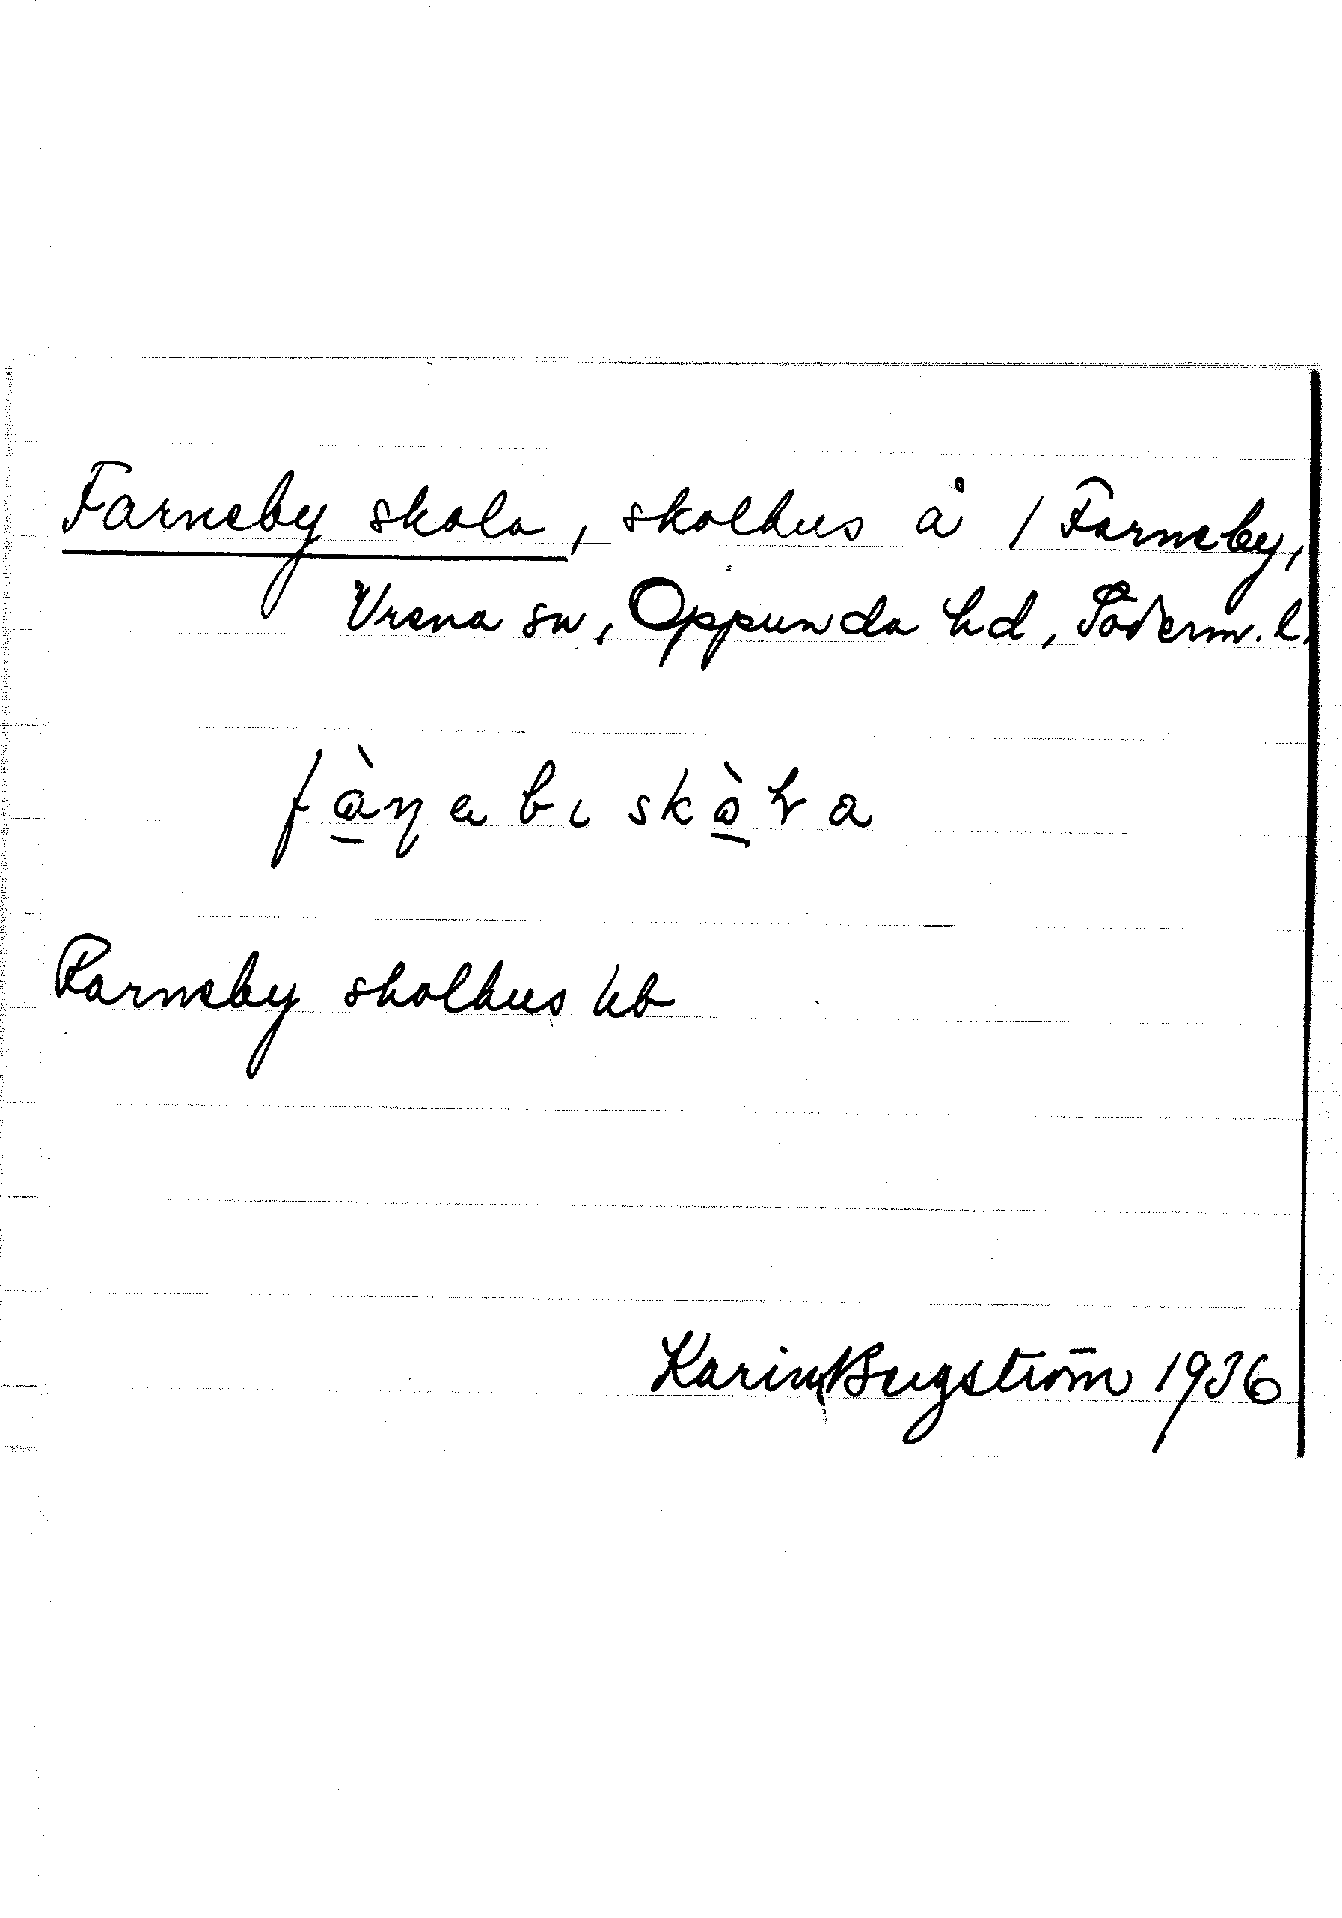 Farneby skola, skolhus å / Farneby,
Vrena sn, Oppunda hd, Söderm. l.
fàɳebi skòla
Farneby skolhus hb
Karin Bergström 1936